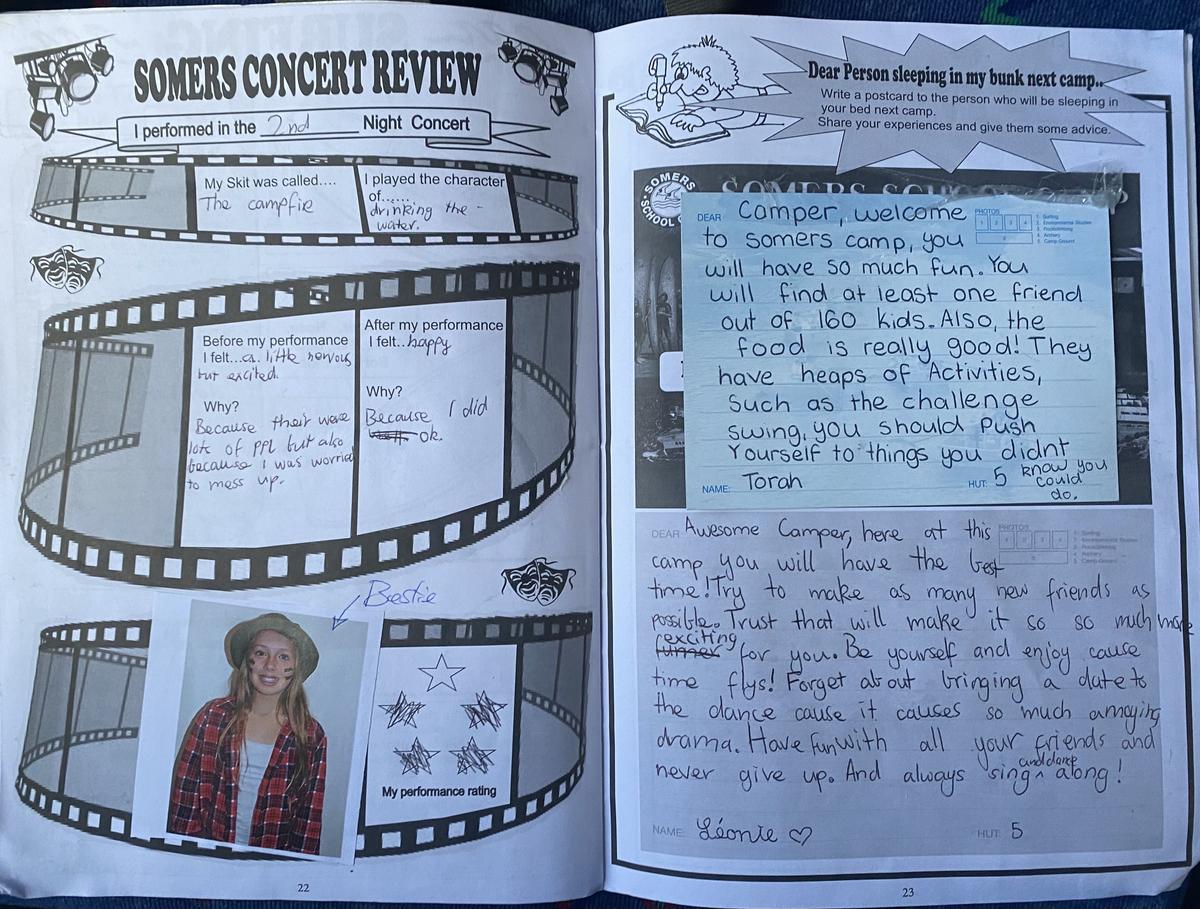 SOMERS CONCERT REVIEW
I performed in the 2nd Night Concert
My Skit was called....
The campfire
I played the character
of......
drinking the -
water.
Before my performance
I felt...a little nervous
but excited.
Why?
Because their were
lots of PPL but also
because I was worried
to mess up.
After my performance
I felt..happy
Why?
Because I did
ok.
Bestie
My performance rating
22
Dear Person sleeping in my bunk next camp..
Write a postcard to the person who will be sleeping in
your bed next camp.
Share your experiences and give them some advice.
SOMERS
SCHOOL
SOMERS SCHOOL
DEAR Camper, welcome
PHOTOS
1 2 3 4
5
1. Surfing
2. Environmental Studies
3. Pedalbiking
4. Archery
5. Camp Ground
to somers camp, you
will have so much fun. You
will find at least one friend
out of 160 kids. Also, the
food is really good! They
have heaps of Activities,
such as the challenge
swing, you should push
Yourself to things you didnt
know you
could
do.
NAME: Torah HUT: 5
DEAR Awesome Camper, here at this
PHOTOS
camp you will have the best
time! Try to make as many new friends as
possible. Trust that will make it so so much more
exciting
funner for you. Be yourself and enjoy cause
time flys! Forget about bringing a date to
the dance cause it causes so much annoying
drama. Have fun with all your friends and
never give up. And always sing and dance along!
NAME: Léonie ♡ HUT: 5
23